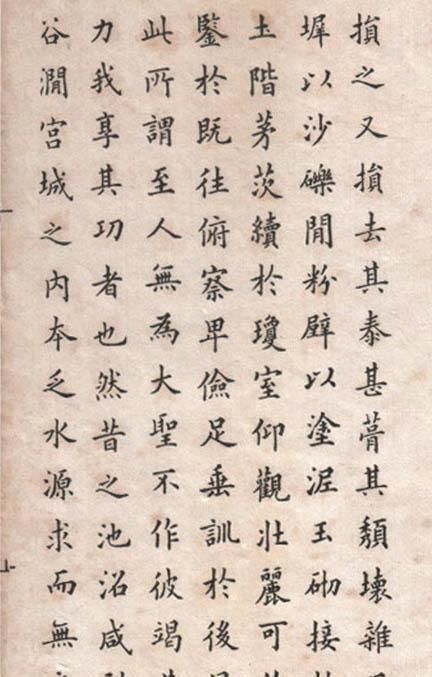 損之又損去其泰甚葺其頹壞雜
墀以沙礫閒粉壁以塗泥玉砌接
土階茅茨續於瓊室仰觀壯麗可
鑒於既往俯察卑儉足垂訓於後
此所謂至人無為大聖不作彼竭
力我享其功者也然昔之池沼咸
谷澗宮城之内本乏水源求而無